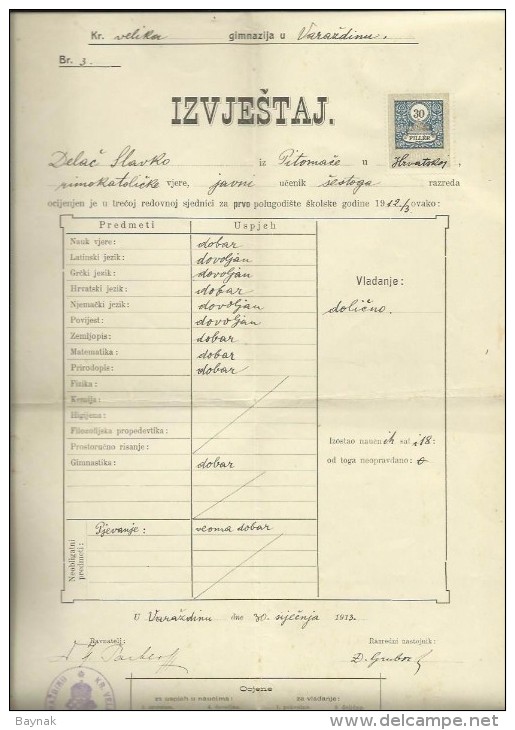 Kr. velika gimnazija u Varaždinu.
Br. 3.
IZVJEŠTAJ.
30
FILLÉR
Delač Slavko iz Pitomače u Hrvatskoj,
rimokatoličke vjere, javni učenik šestoga razreda
ocijenjen je u trećoj redovnoj sjednici za prvo polugodište školske godine 1912/3 ovako:
Predmeti Uspjeh
Nauk vjere: dobar
Latinski jezik: dovoljan
Grčki jezik: dovoljan
Hrvatski jezik: dobar
Njemački jezik: dovoljan
Povijest: dovoljan
Zemljopis: dobar
Matematika: dobar
Prirodopis: dobar
Fizika:
Kemija:
Higijena:
Filozofijska propedevtika:
Prostoručno risanje:
Gimnastika: dobar
Vladanje:
dolično.
Izostao naučnih sati 18:
od toga neopravdano: 0
Neobligatni predmeti:
Pjevanje: veoma dobar
U Varaždinu dne 30. siječnja 1913.
Ravnatelj: Razredni nastojnik:
Ocjene
za uspjeh u naucima: za vladanje:
KR. VEL
Baynak delcampe.net